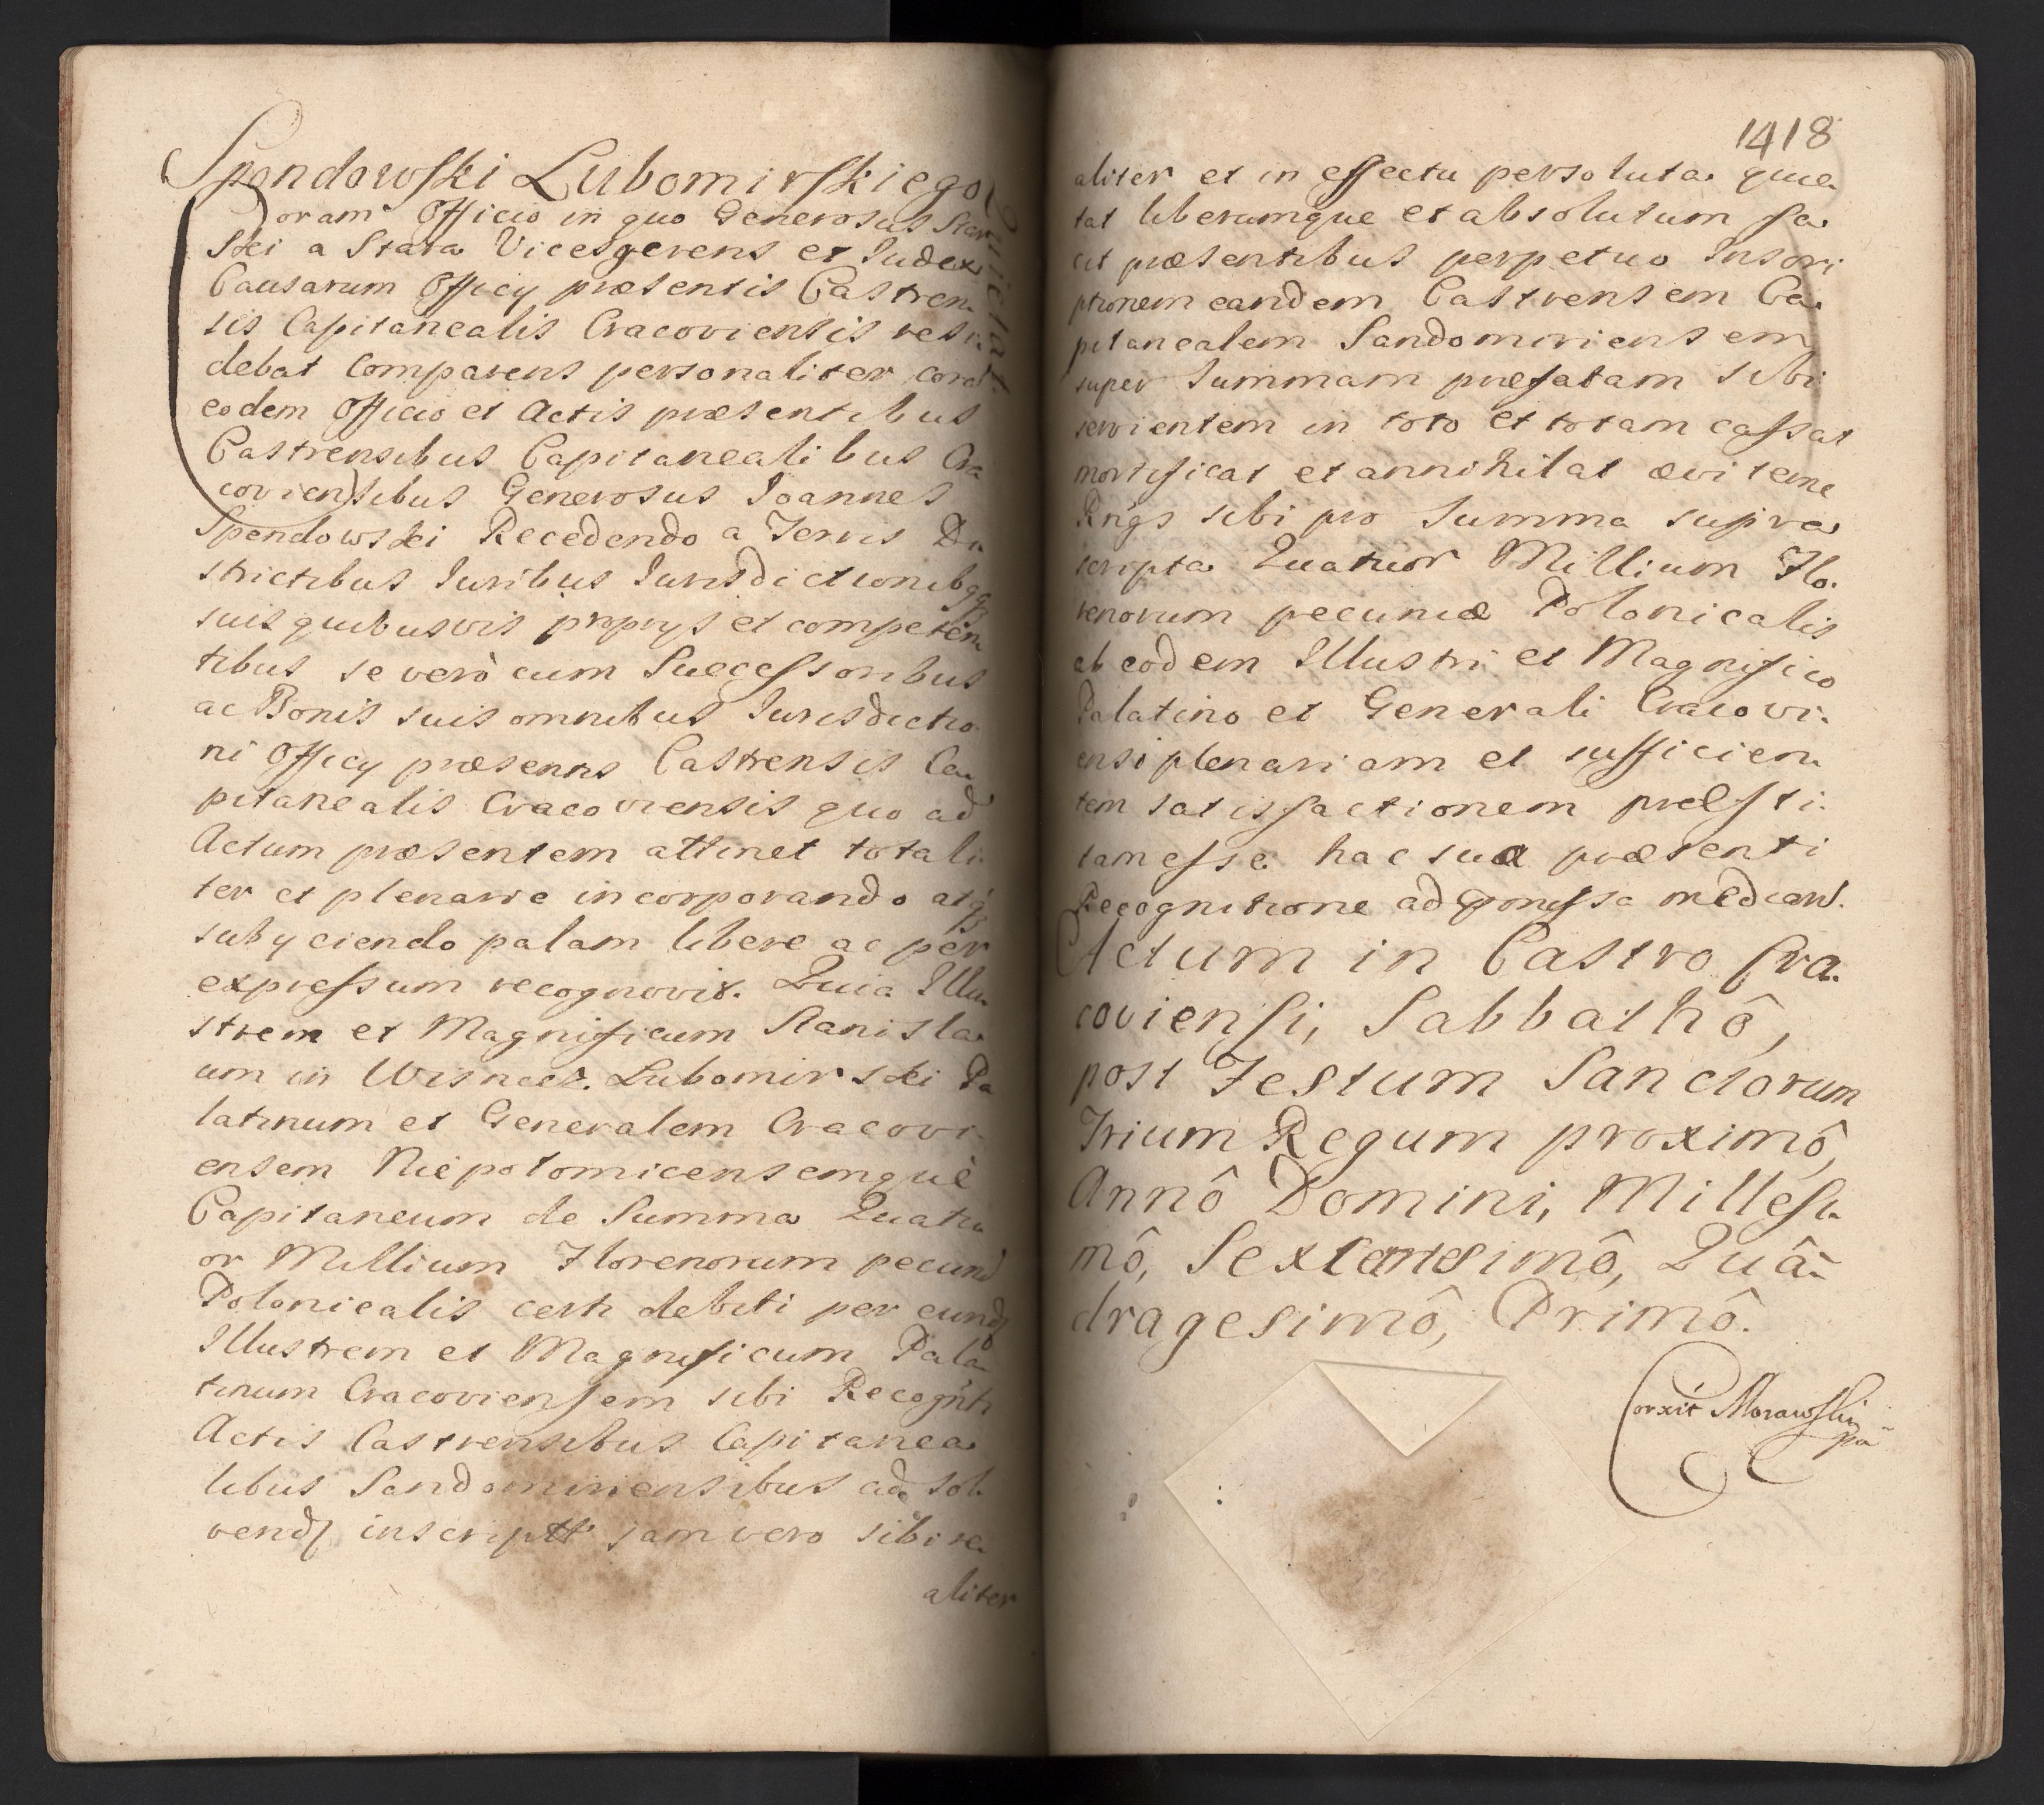 Spendowski Lubomirskiego
quietat
Coram Officio in quo Generosus Stan
ski a Stara Vicesgerens et Judex
Causarum Officy præsentis Castren
sis Capitanealis Cracoviensis resi
debat Comparens personaliter cora
eodem Officio et Actis præsentibus
Castrensibus Capitanealibus Cra
coviensibus Generosus Joannes
Spendowski Recedendo a Terris Di
strictibus Juribus Jurisdictionibqz
suis quibusvis proprys et competen
tibus se verò cum Successoribus
ac Bonis suis omnibus Jurisdictio
ni Officy præsentis Castrensis Ca
pitanealis Cracoviensis quo ad
Actum præsentem attinet totali
ter et plenarie incorporando atqz
subyciendo palam libere ac per
expressum recognovit. Quia Illu
strem et Magnificum Stanisla
um in Wisnicz Lubomirski Pa
latinum et Generalem Cracovi
ensem Niepolomicensemquè
Capitaneum de Summa Quatu
or Millium Florenorum pecuniæ
Polonicalis certi debiti per eund
Illustrem et Magnificum Pala
tinum Cracoviensem sibi Recognit
Actis Castrensibus Capitanea
libus Sandomiriensibus ad sol
vend inscript jam vero sibi re
aliter
1418
aliter et in effectu persoluta quie
tat liberumque et absolutum fa
cit præsentibus perpetuo Inscri
ptionem eandem Castrensem Ca
pitanealem Sandomiriensem
super Summam præfatam sibi
servientem in toto et totam cassat
mortificat et annihilat æviterne
Rngs sibi pro Summa supra
scripta Quatuor Millium Flo
renorum pecuniæ Polonicalis
ab eodem Illustri et Magnifico
Palatino et Generali Cracovi
ensi plenariam et sufficien
tem satisfactionem præsti
tam esse hac sua præsenti
Recognitione ad præmissa mediant.
Actum in Castro Cra
coviensi, Sabbathô,
post Festum Sanctorum
Trium Regum proximô,
Annô Domini, Millesi
mô, Sexcentesimô, Quâ
dragesimô, Primô.
Corxit Morawski
pa